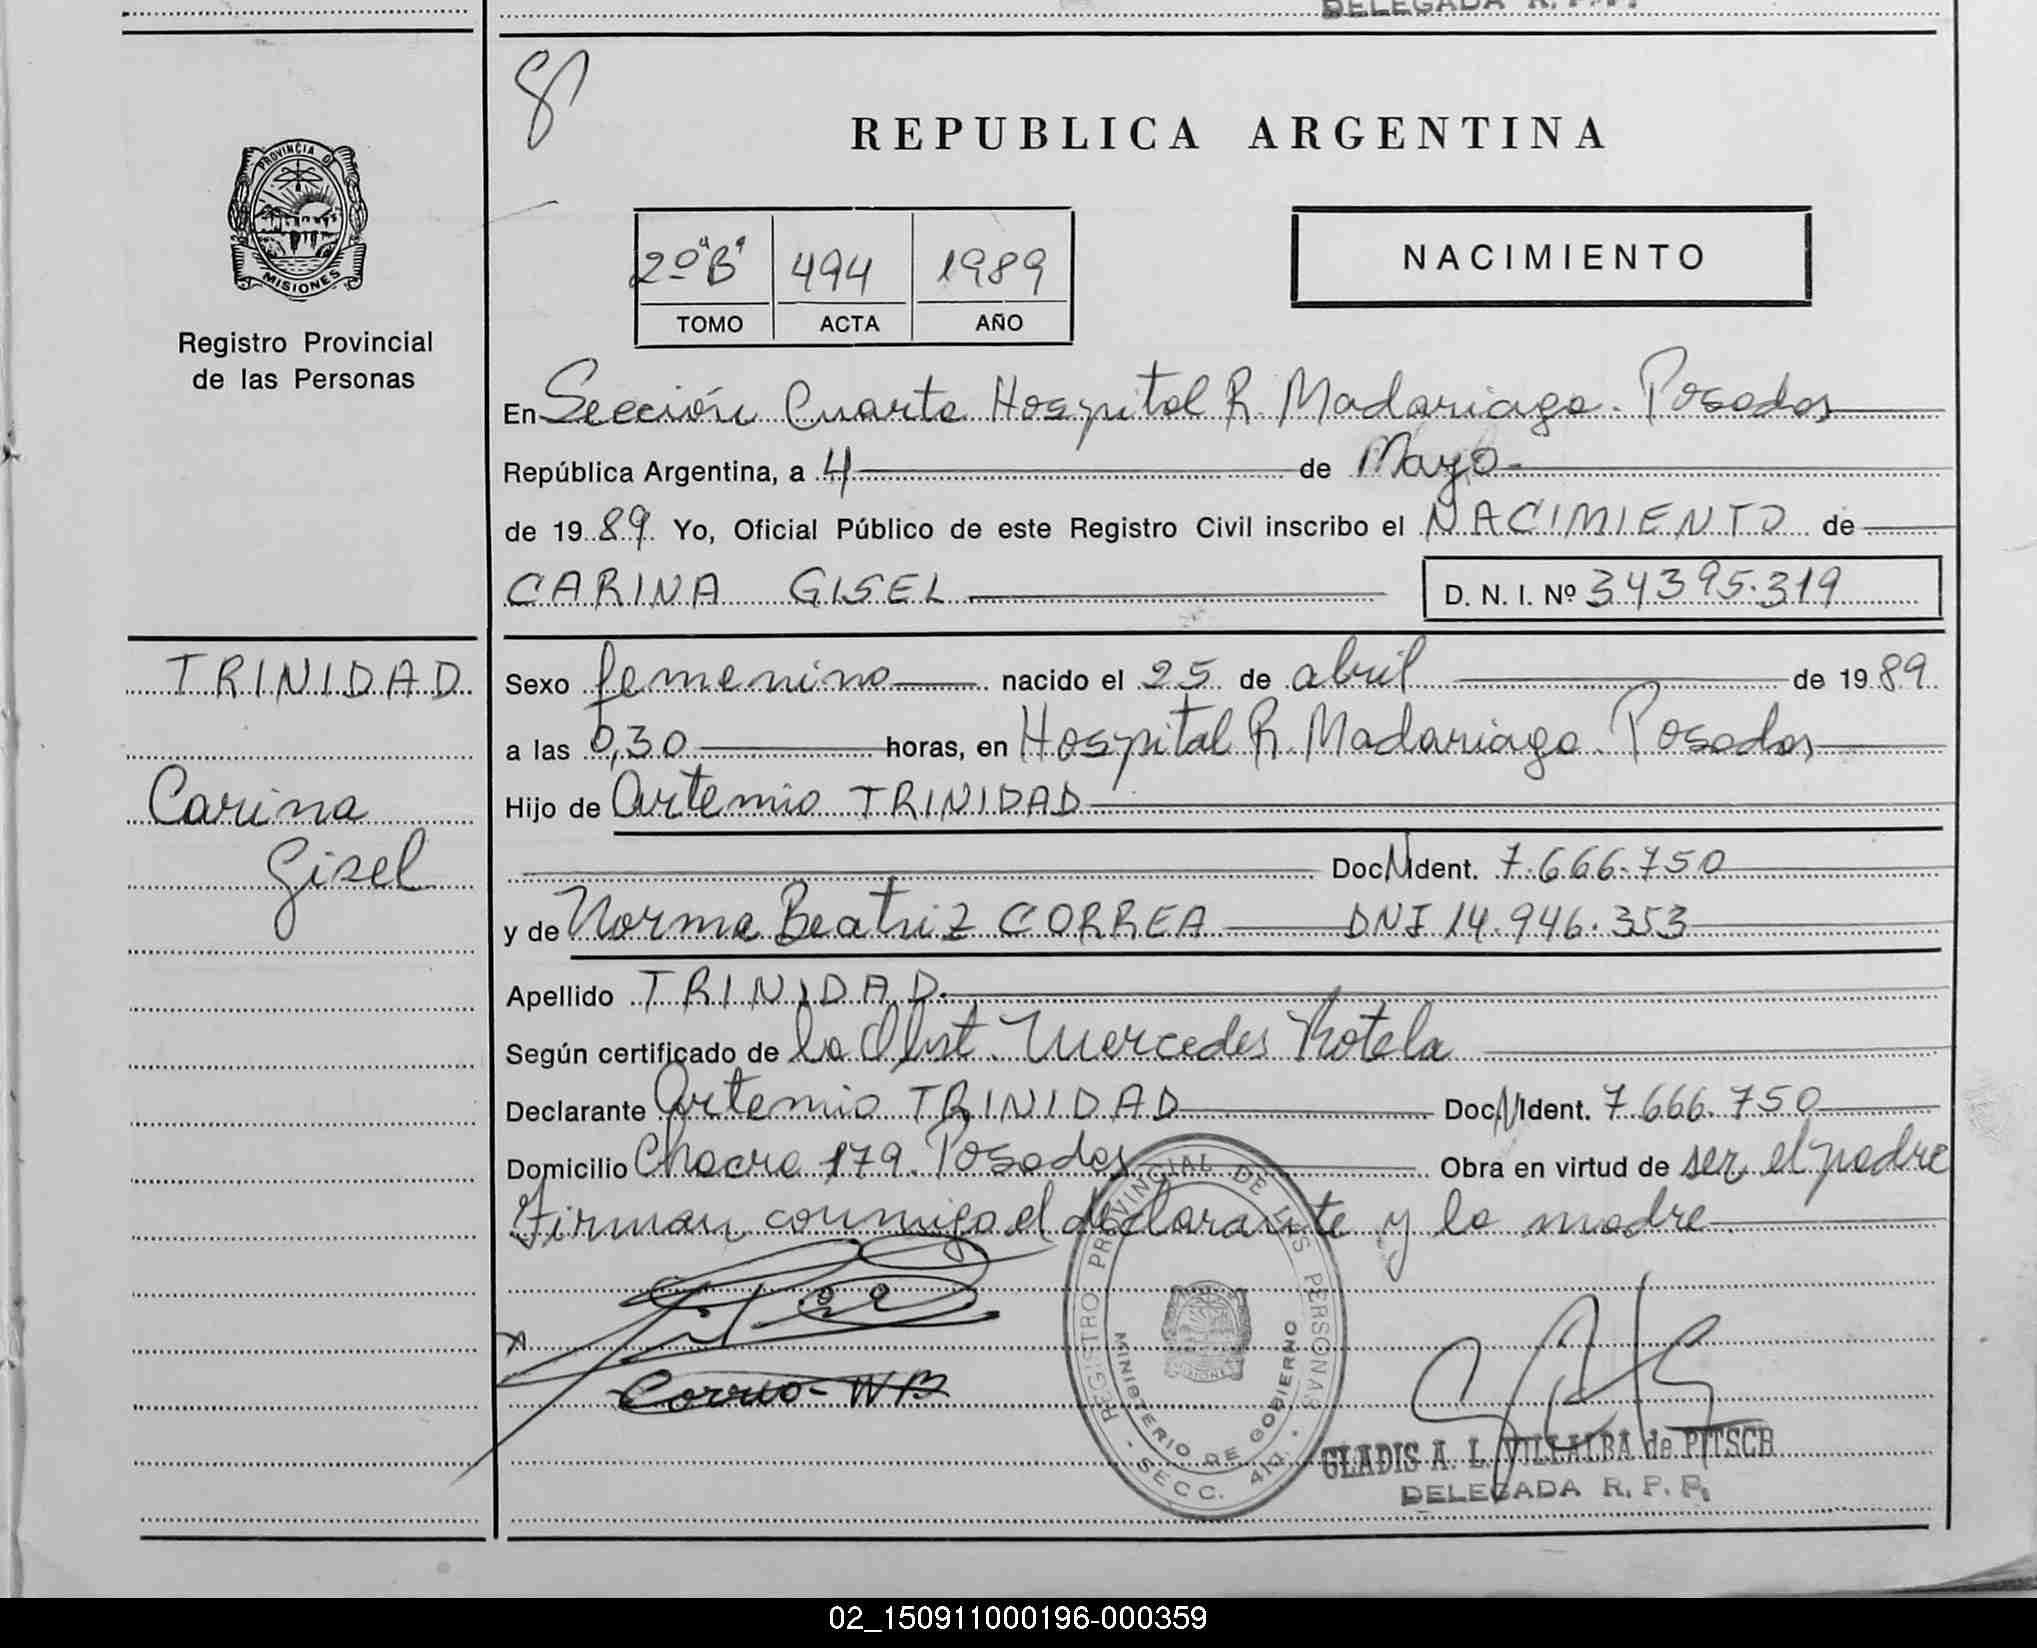 DELEGADA R. P. P.
8
PROVINCIA DE
MISIONES
Registro Provincial
de las Personas
REPUBLICA ARGENTINA
2º "B" 494 1989
TOMO ACTA AÑO
NACIMIENTO
En Sección Cuarta Hospital R. Madariaga. Posadas
República Argentina, a 4 de Mayo
de 1989 Yo, Oficial Público de este Registro Civil inscribo el NACIMIENTO de
CARINA GISEL D. N. I. Nº 34395.319
TRINIDAD
Carina
Gisel
Sexo femenino nacido el 25 de abril de 1989
a las 0,30 horas, en Hospital R. Madariaga. Posadas
Hijo de Artemio TRINIDAD
Doc. N Ident. 7.666.750
y de Norma Beatriz CORREA DNI 14.946.353
Apellido TRINIDAD
Según certificado de la Obst. Mercedes Rotela
Declarante Artemio TRINIDAD Doc. N Ident. 7.666.750
Domicilio Chacra 179. Posadas Obra en virtud de ser el padre
Firman conmigo el declarante y la madre
REGISTRO PROVINCIAL DE LAS PERSONAS
MINISTERIO DE GOBIERNO
- SECC. 4ta. -
MISIONES
GLADIS A. L. VILLALBA de PITSCH
DELEGADA R. P. P.
02_150911000196-000359